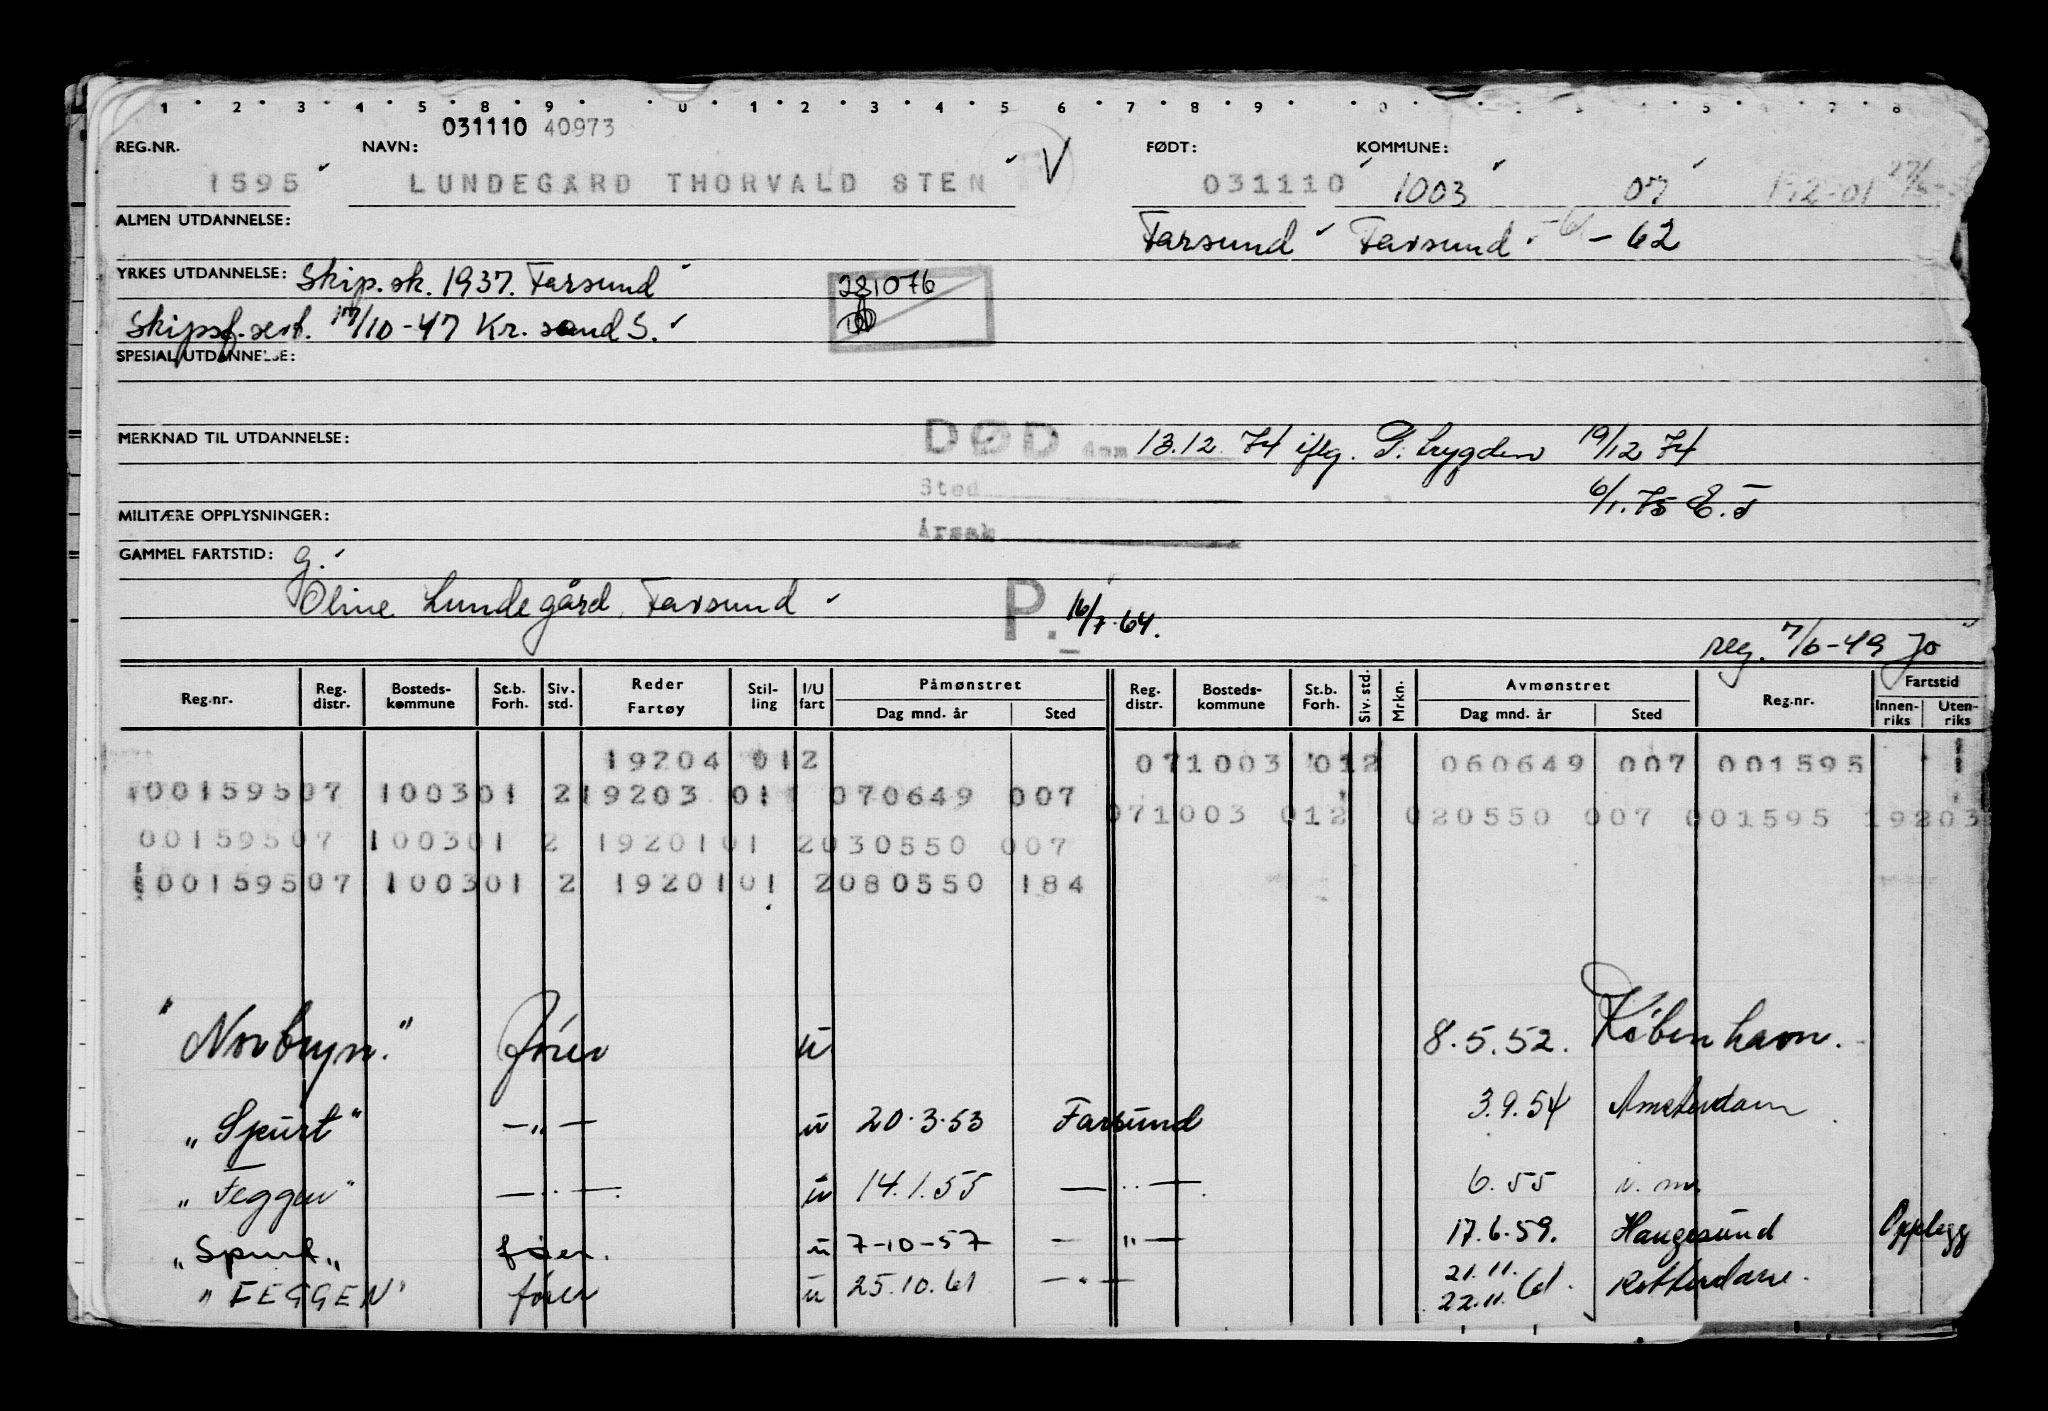 1 2 3 4 5 8 9 0 1 2 3 4 5 6 7 8 9 0
031110 40973
REG.NR. NAVN: FØDT: KOMMUNE:
1595 LUNDEGÅRD THORVALD STEN V 031110 1003 07 192-01
ALMEN UTDANNELSE: Farsund Farsund -61 - 62
YRKES UTDANNELSE: Skip.sk. 1937. Farsund 281076
Skipsf.sert. 17/10-47 Kr.sand S.
SPESIAL UTDANNELSE:
MERKNAD TIL UTDANNELSE: DØD den 13.12.74 iflg. T. trygden 19/12 74
Sted 6/1.75 E.T
MILITÆRE OPPLYSNINGER: Årsak
GAMMEL FARTSTID: g.
Oline Lundegård, Farsund P. 16/7.64.
reg. 7/6-49 Jo
Reg.nr. Reg. distr. Bosteds- kommune St.b. Forh. Siv. std. Reder Fartøy Stil- ling I/U fart Påmønstret Dag mnd. år Sted Reg. distr. Bosteds- kommune St.b. Forh. Siv. std. Mrkn. Avmønstret Dag mnd. år Sted Reg.nr. Fartstid Innen- riks Uten- riks
19204 012 071003 012 060649 007 001595 1
00159507 100301 219203 011 070649 007
071003 012 020550 007 001595 19203
00159507 100301 2 1920101 2030550 007
00159507 100301 2 1920101 2080550 184
"Norbryn." fører u 8.5.52. København.
"Spurt" —"— u 20.3.53 Farsund 3.9.54 Amsterdam
"Feggen" —"— u 14.1.55 —"— 6.55
"Spurt" fører. u 7-10-57 —"— 17.6.59. Haugesund Opplegg
"FEGGEN" fører u 25.10.61 —"— 21.11. 22.11. 61. Rotterdam.